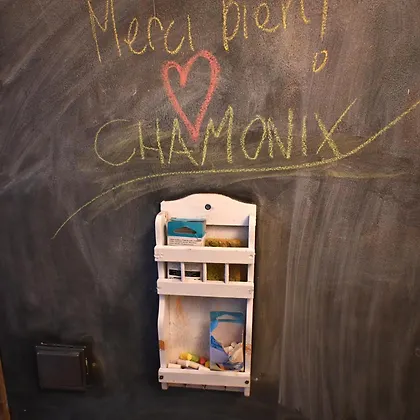 Merci pien!
CHAMONIX